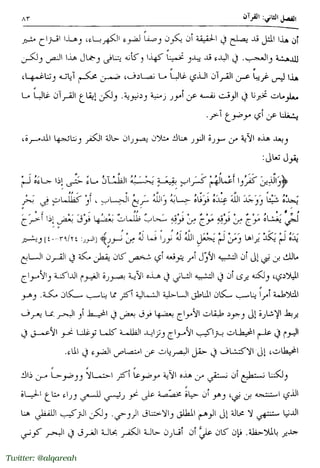 الفصل الثاني: القرآن
٨٣
أن هذا المثل قد يصلح في الحقيقة أن يكون وصفاً لضوء الكهرباء، وهذا اقتراح مثير
للدهشة والعجب. في البدء قد يبدو تخميناً كهذا وكأنه يتنافى وجمال هذا النص ولكن
هذا ليس غريباً عن القرآن الذي غالباً ما نصادف، ضمن محكم آياته وتناغمها،
معلومات تخبرنا في الوقت نفسه عن أمور زمنية ودنيوية. ولكن إيقاع القرآن غالباً ما
يشغلنا عن أي موضوع آخر.
وبعد هذه الآية من سورة النور هناك مثلان يصوران حالة الكفر ونتائجها المدمرة،
يقول تعالى:
﴿وَالَّذِينَ كَفَرُوا أَعْمَالُهُمْ كَسَرَابٍ بِقِيعَةٍ يَحْسَبُهُ الظَّمْآنُ مَاءً حَتَّى إِذَا جَاءَهُ لَمْ
يَجِدْهُ شَيْئاً وَوَجَدَ اللَّهَ عِنْدَهُ فَوَفَّاهُ حِسَابَهُ وَاللَّهُ سَرِيعُ الْحِسَابِ، أَوْ كَظُلُمَاتٍ فِي بَحْرٍ
لُجِّيٍّ يَغْشَاهُ مَوْجٌ مِنْ فَوْقِهِ مَوْجٌ مِنْ فَوْقِهِ سَحَابٌ ظُلُمَاتٌ بَعْضُهَا فَوْقَ بَعْضٍ إِذَا أَخْرَجَ
يَدَهُ لَمْ يَكَدْ يَرَاهَا وَمَنْ لَمْ يَجْعَلِ اللَّهُ لَهُ نُوراً فَمَا لَهُ مِنْ نُورٍ﴾ [النور: ٤٠-٣٩/٢٤] ويشير
مالك بن نبي إلى أن التشبيه الأول أمر يتوقعه أي شخص كان يقطن مكة في القرن السابع
الميلادي، ولكنه يرى أن في التشبيه الثاني في هذه الآية بصورة الغيوم الداكنة والأمواج
المتلاطمة أمراً يناسب سكان المناطق الساحلية الشمالية أكثر مما يناسب سكان مكة. وهو
يربط الإشارة إلى وجود طبقات الأمواج بعضها فوق بعض في المحيط أو البحر بما يعرف
اليوم في علم المحيطات بتراكيب الأمواج وتزايد الظلمة كلما توغلنا نحو الأعمق في
المحيطات، إلى الاكتشاف في حقل البصريات عن امتصاص الضوء في الماء.
ولكننا نستطيع أن نستقي من هذه الآية موضوعاً أكثر احتمالاً ووضوحاً من ذاك
الذي استنتجه بن نبي، وهو أن حياةً مخصّصة على نحو رئيسي للسعي وراء متاع الحياة
الدنيا ستنتهي لا محالة إلى الوهم المطلق والاختناق الروحي. ولكن التركيب اللفظي هنا
جدير بالملاحظة. فإن كان عليَّ أن أقارن حالة الكفر بحالة الغرق في البحر كوني
Twitter: @alqareah